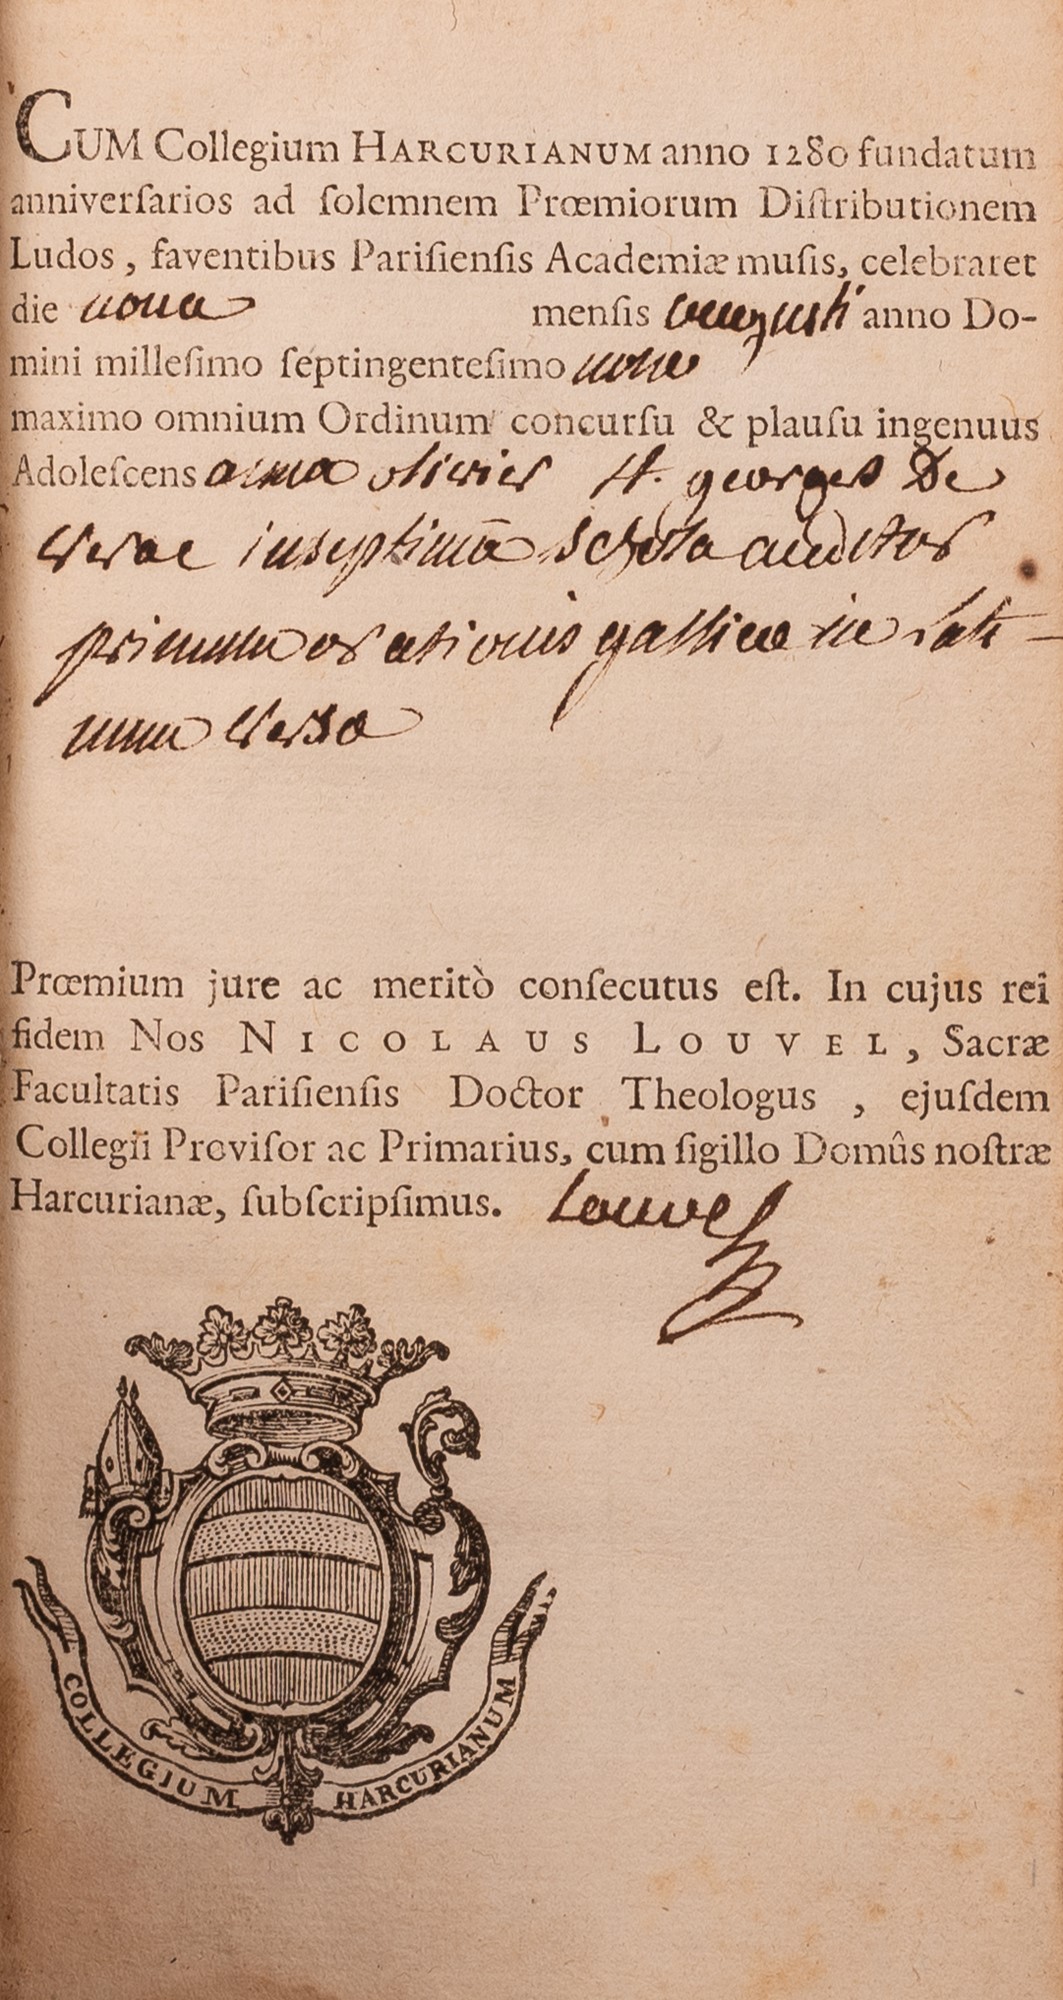 CUM Collegium HARCURIANUM anno 1280 fundatum
anniverſarios ad ſolemnem Prœmiorum Diſtributionem
Ludos, faventibus Pariſienſis Academiæ muſis, celebraret
die nona menſis augusti anno Do-
mini milleſimo ſeptingenteſimo nono
maximo omnium Ordinum concurſu & plauſu ingenuus
Adoleſcens anna olivier st. georges De
verac in septimā schola auditor
primum orationis gallicae in lati-
num versa
Prœmium jure ac meritò conſecutus eſt. In cujus rei
fidem Nos NICOLAUS LOUVEL, Sacræ
Facultatis Pariſienſis Doctor Theologus, ejuſdem
Collegii Proviſor ac Primarius, cum ſigillo Domûs noſtræ
Harcurianæ, ſubſcripſimus. Louvel
COLLEGIUM HARCURIANUM